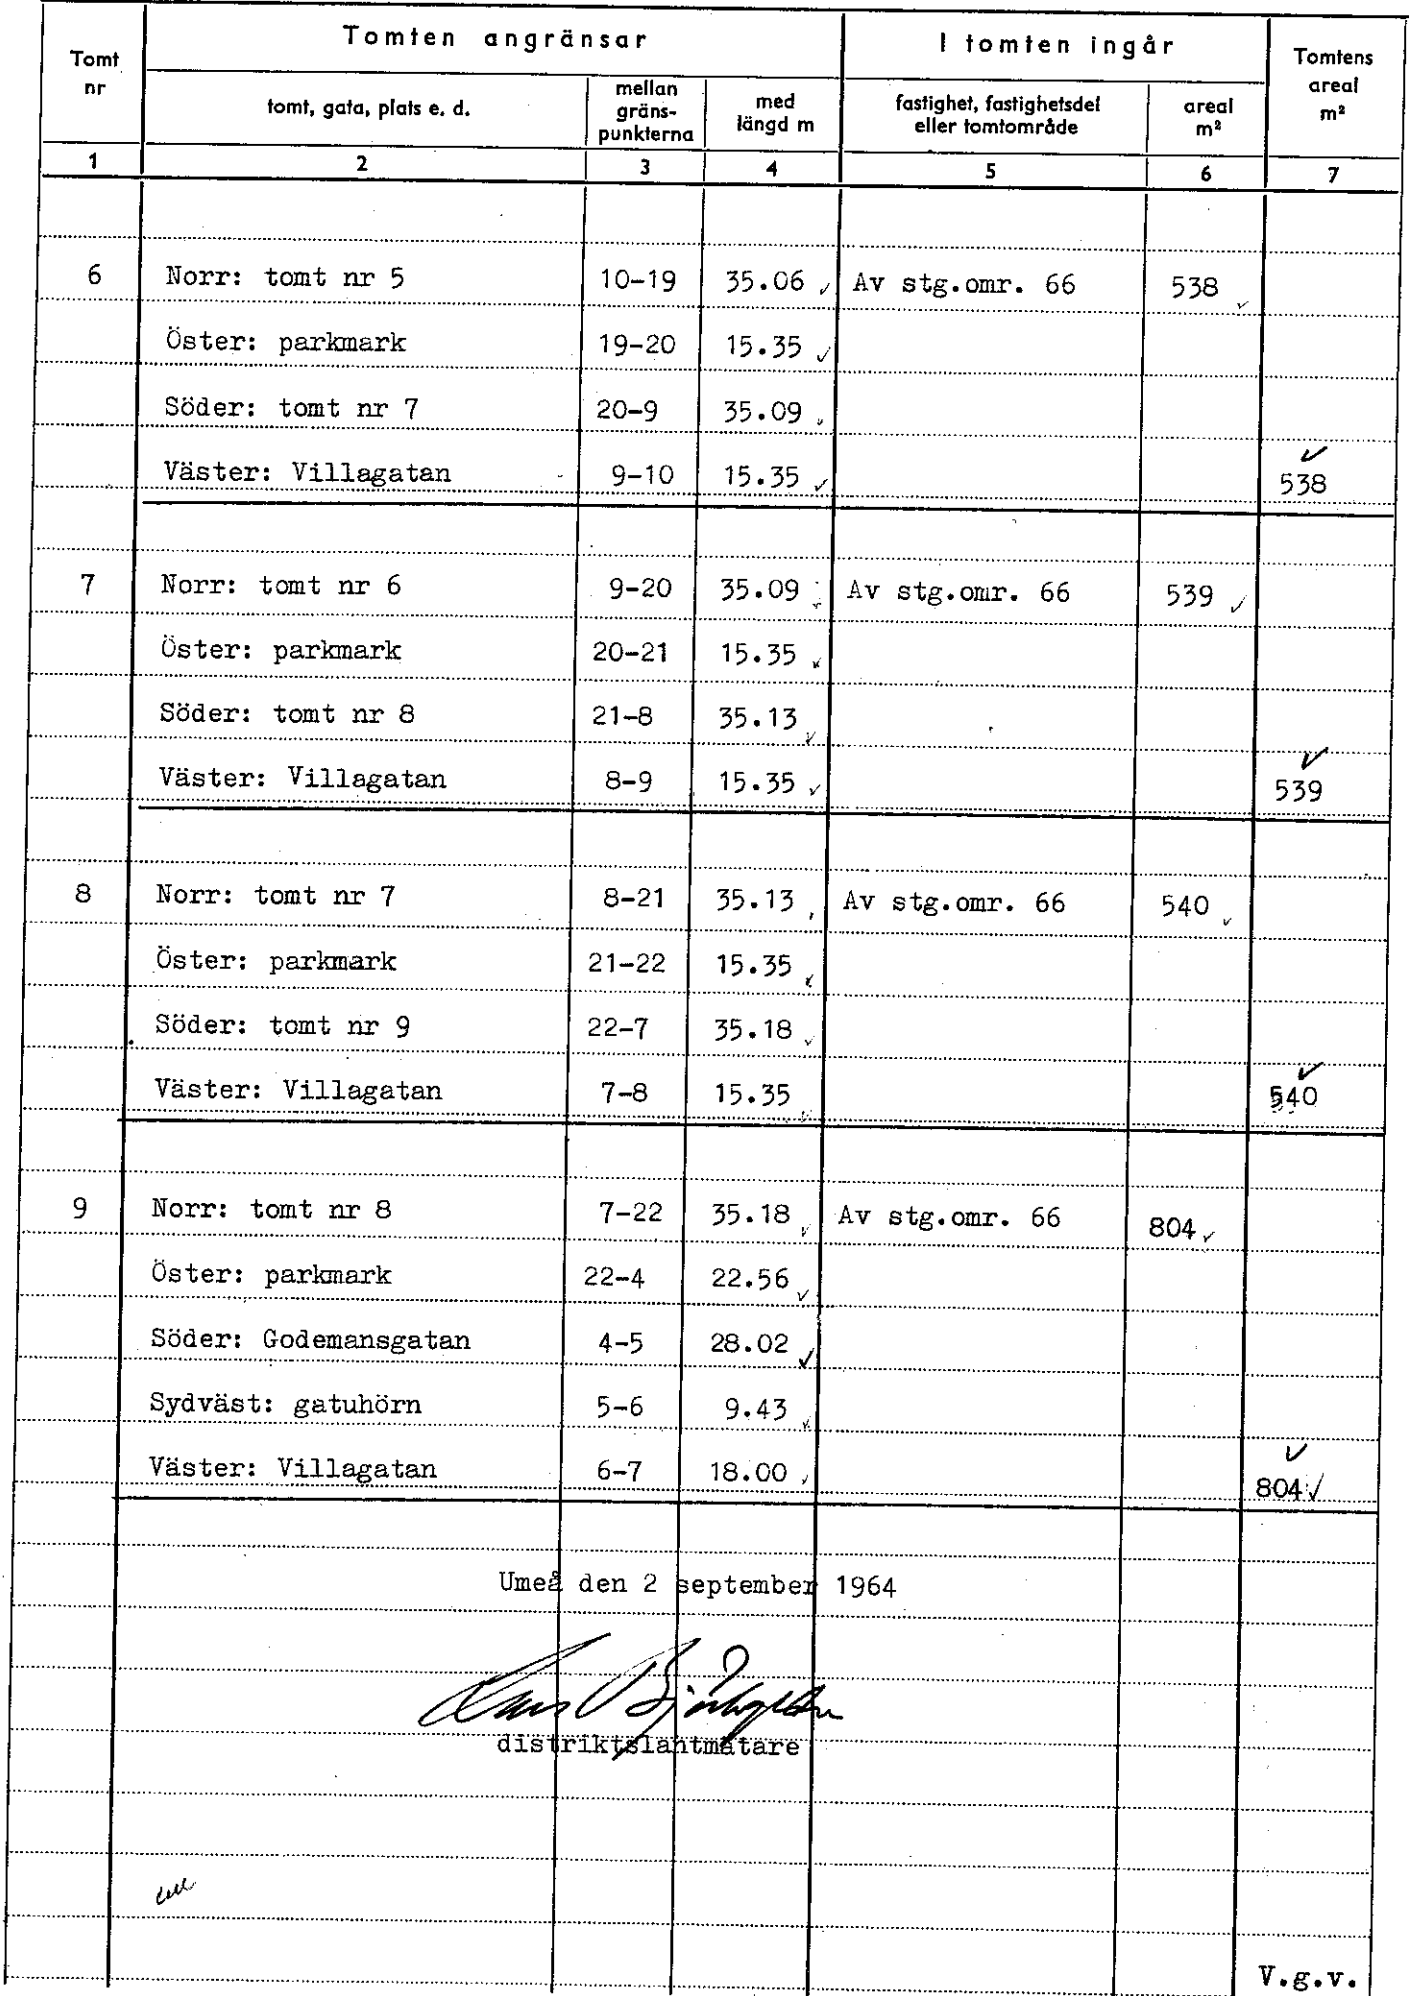 Tomt nr Tomten angränsar I tomten ingår Tomtens areal m²
tomt, gata, plats e. d. mellan gräns-punkterna med längd m fastighet, fastighetsdel eller tomtområde areal m²
1 2 3 4 5 6 7
6 Norr: tomt nr 5 10-19 35.06 ✓ Av stg.omr. 66 538 ✓
Öster: parkmark 19-20 15.35 ✓
Söder: tomt nr 7 20-9 35.09 ✓
Väster: Villagatan 9-10 15.35 ✓ ✓ 538
7 Norr: tomt nr 6 9-20 35.09 Av stg.omr. 66 539 ✓
Öster: parkmark 20-21 15.35 ✓
Söder: tomt nr 8 21-8 35.13 ✓
Väster: Villagatan 8-9 15.35 ✓ ✓ 539
8 Norr: tomt nr 7 8-21 35.13 Av stg.omr. 66 540 ✓
Öster: parkmark 21-22 15.35 ✓
Söder: tomt nr 9 22-7 35.18 ✓
Väster: Villagatan 7-8 15.35 ✓ ✓ 540
9 Norr: tomt nr 8 7-22 35.18 ✓ Av stg.omr. 66 804 ✓
Öster: parkmark 22-4 22.56 ✓
Söder: Godemansgatan 4-5 28.02 ✓
Sydväst: gatuhörn 5-6 9.43 ✓
Väster: Villagatan 6-7 18.00 ✓ 804 ✓
Umeå den 2 september 1964
distriktslantmätare
V.g.v.